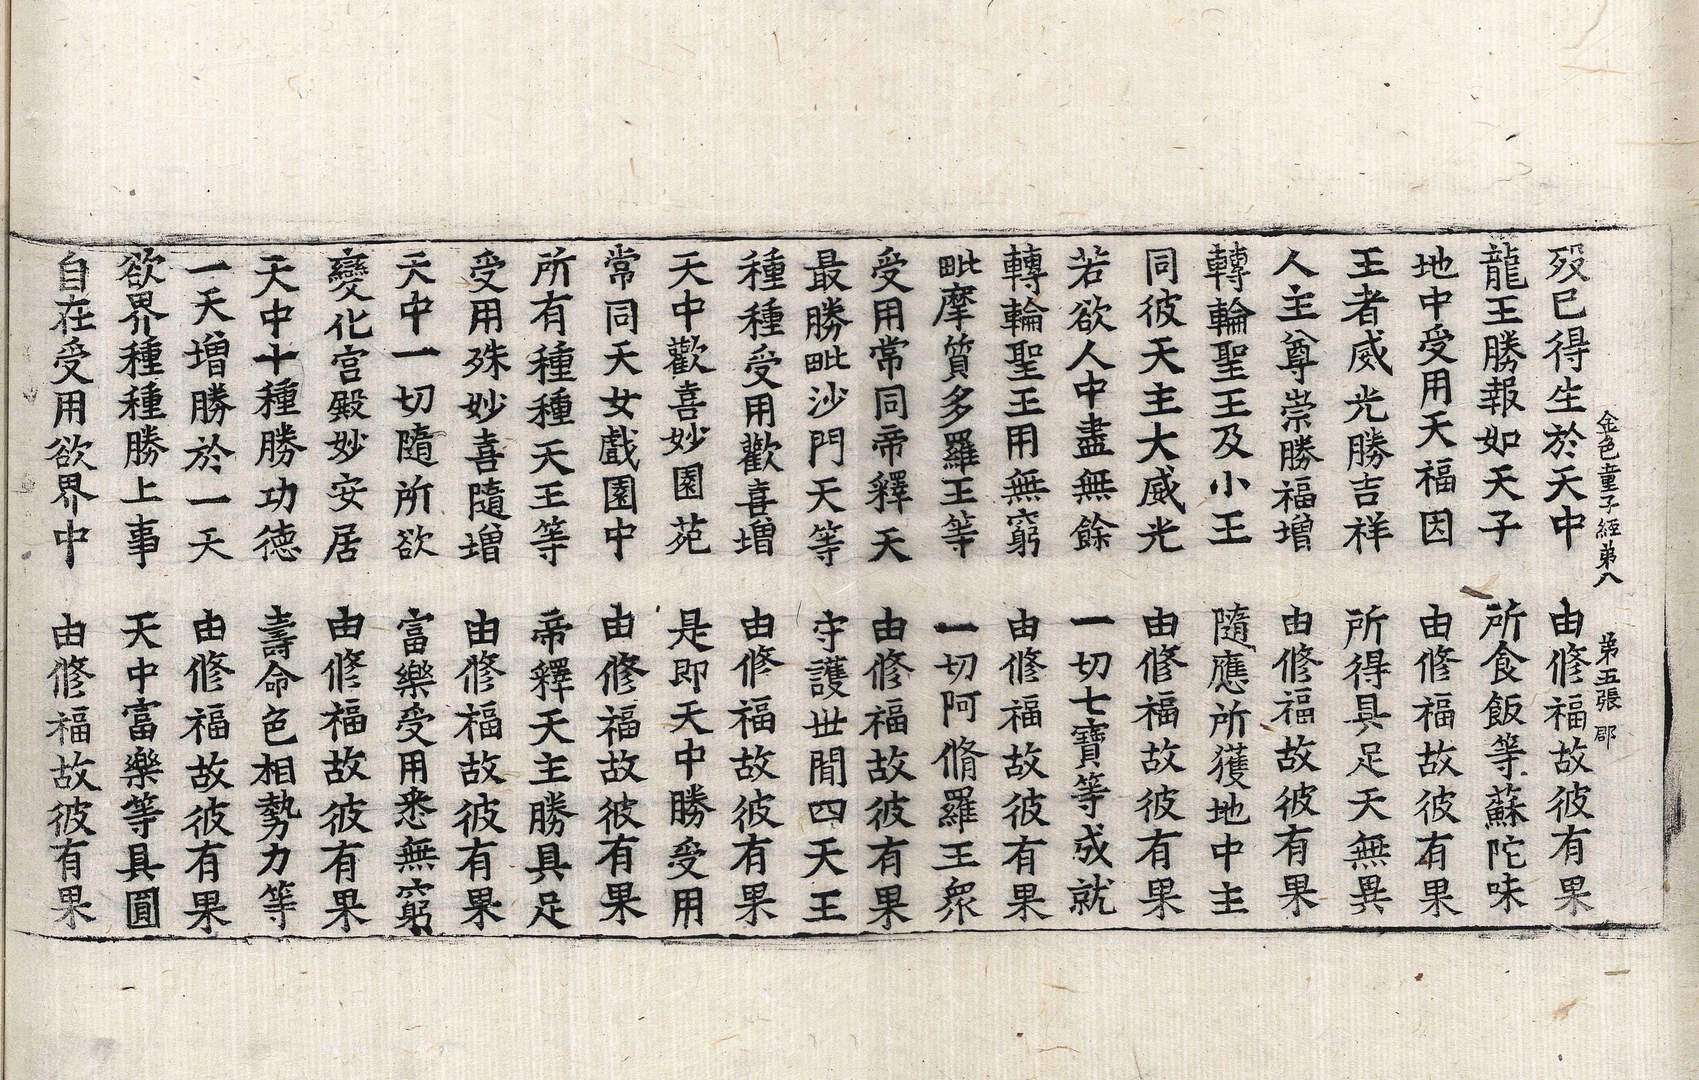 金色童子經第八　第五張　郡
歿已得生於天中　由修福故彼有果
龍王勝報如天子　所食飯等蘇陀味
地中受用天福因　由修福故彼有果
王者威光勝吉祥　所得具足天無異
人主尊崇勝福增　由修福故彼有果
轉輪聖王及小王　隨應所獲地中主
同彼天主大威光　由修福故彼有果
若欲人中盡無餘　一切七寶等成就
轉輪聖王用無窮　由修福故彼有果
毗摩質多羅王等　一切阿脩羅王眾
受用常同帝釋天　由修福故彼有果
最勝毗沙門天等　守護世間四天王
種種受用歡喜增　由修福故彼有果
天中歡喜妙園苑　是即天中勝受用
常同天女戲園中　由修福故彼有果
所有種種天王等　帝釋天主勝具足
受用殊妙喜隨增　由修福故彼有果
天中一切隨所欲　富樂受用悉無窮
變化宮殿妙安居　由修福故彼有果
天中十種勝功德　壽命色相勢力等
一天增勝於一天　由修福故彼有果
欲界種種勝上事　天中富樂等具圓
自在受用欲界中　由修福故彼有果